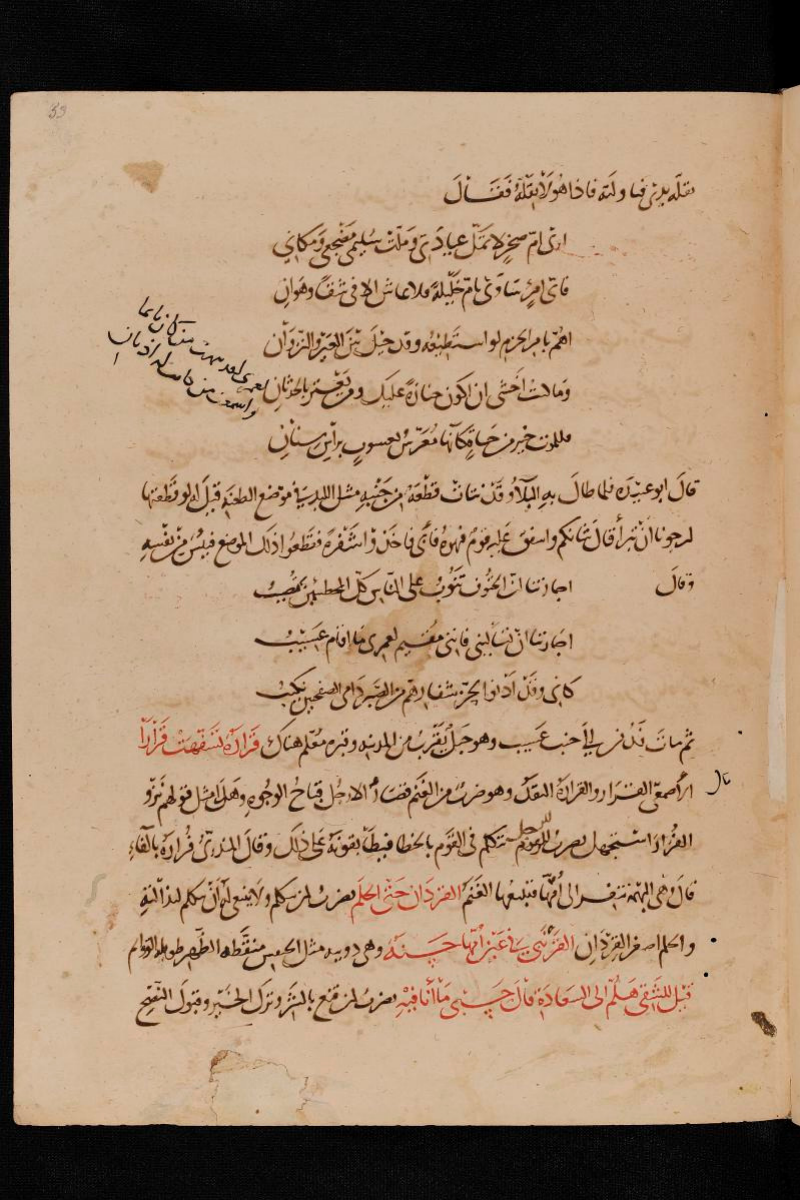 يقله بيدي فناولته فاذا هو لا يقله فقال
ارى ام صخر لا تمل عيادتي وملت سليمى مضجعي ومكاني
فاي امرئ ساوى بام حليلة فلا عاش الا في شقا وهوان
اهم بامر الحزم لو استطيعه وقد حيل بين العير والنزوان
وما كنت اخشى ان اكون جنازة عليك ومن يغتر بالحدثان
فللموت خير من حياة كانها معرس يعسوب براس سنان
لعمري لقد نبهت من كان نائما
واسمعت من كانت له اذنان
قال ابو عبيدة فلما طال به البلاء وقد نتات قطعة من جنبه مثل اللبد في موضع الطعنة قيل له لو قطعتها
لرجونا ان تبرأ قال شانكم واشفق عليه قوم فنهوه فابى فاخذوا شفرة فقطعوا ذلك الموضع فيئس من نفسه
وقال
اجارتنا ان الحتوف تنوب على الناس كل المخطئين تصيب
اجارتنا ان تساليني فانني مقيم لعمري ما اقام عسيب
كاني وقد ادنوا لحز شفارهم من الصبر دامي الصفحتين نكيب
ثم مات فدفن الى جنب عسيب وهو جبل بقرب من المدينة وقبره معلم هناك فرارة تسفهت قرارا
الاصمعي الفرار والقرارة النقد وهو ضرب من الغنم قصار الارجل قباح الوجوه وهذا مثل قولهم نزو
الفرار استجهل يضرب للرجل يتكلم في القوم بالخطا فيطابقونه على ذلك وقال المنذري فرارة بالفاء
قال وهي البهمة تنفر الى امها فتتبعها الغنم القردان حتى الحلم يضرب لمن يتكلم ولا ينبغي له ان يتكلم لنذالته
والحلم اصغر القردان القرنبى في عين امها حسنة وهي دويبة مثل الخنفس منقطة الظهر طويلة القوائم
قيل للشقي هلم الى السعادة قال حسبي ما انا فيه يضرب لمن قنع بالشر وترك الخير وقبول النصح